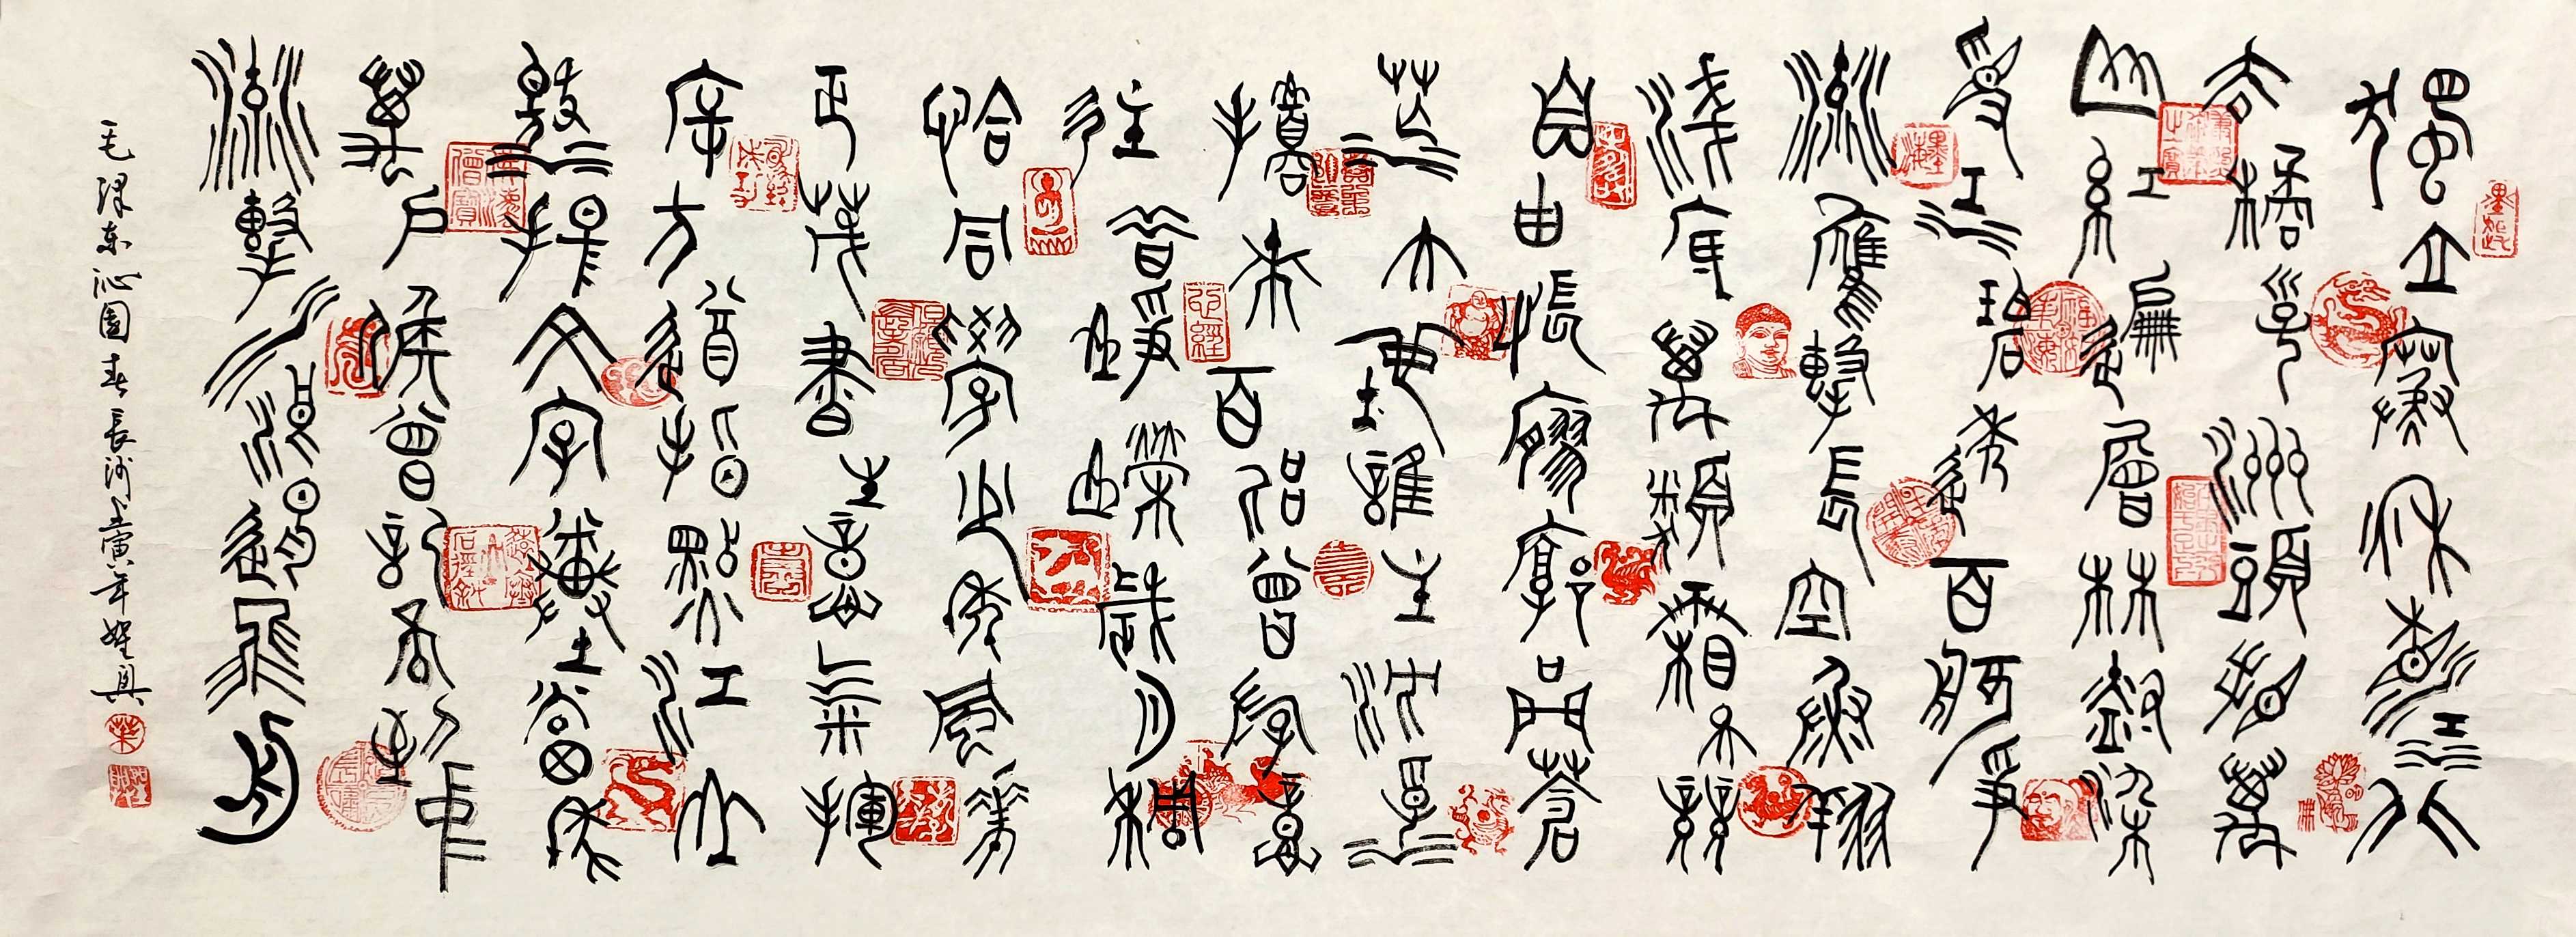 獨立寒秋湘江北
去橘子洲頭看萬
山紅遍層林盡染
漫江碧透百舸爭
流鷹擊長空魚翔
淺底萬類霜天競
自由悵寥廓問蒼
茫大地誰主沉浮
攜來百侶曾遊意
往昔崢嶸歲月稠
恰同學少年風華
正茂書生意氣揮
斥方遒指點江山
激揚文字糞土當年
萬戶侯曾記否到中
流擊水浪遏飛舟
毛澤东沁園春長沙壬寅年